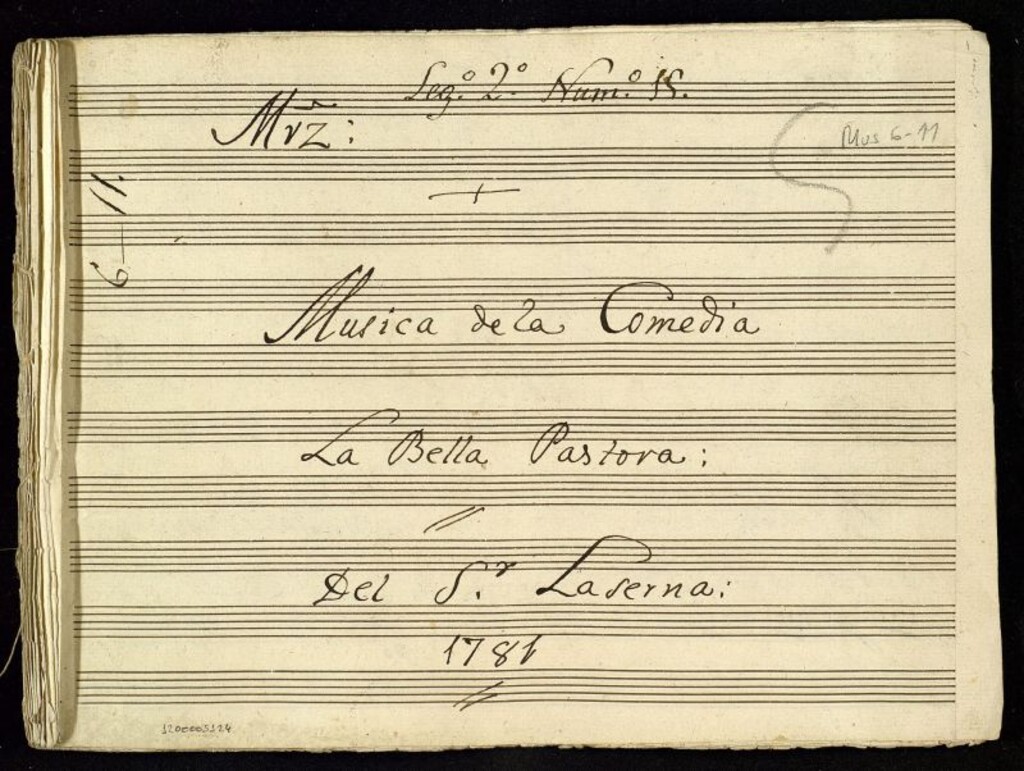 Leg.º 2.º Num.º 15.
Mrz:
Mus 6-11
6-11.
+
Musica de la Comedia
La Bella Pastora:
Del S.r Laserna:
1781
1200005124